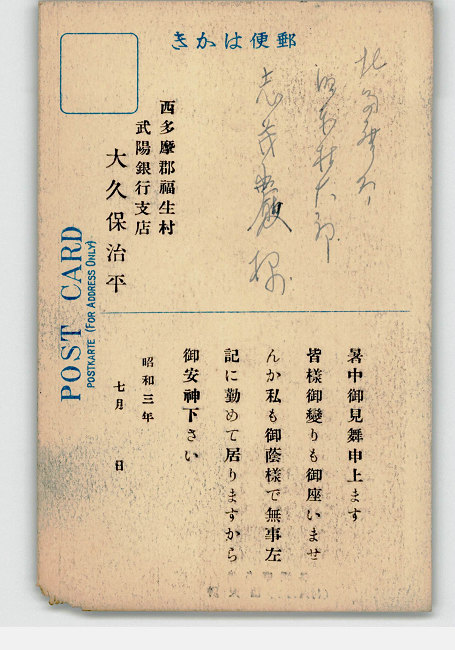 きかは便郵
POST CARD
POSTKARTE (FOR ADDRESS ONLY)
北多摩郡
志茂 巖 様
西多摩郡福生村
武陽銀行支店
大久保治平
暑中御見舞申上ます
皆樣御變りも御座いませ
んか私も御蔭樣で無事左
記に勤めて居りますから
御安神下さい
昭和三年
七月 日